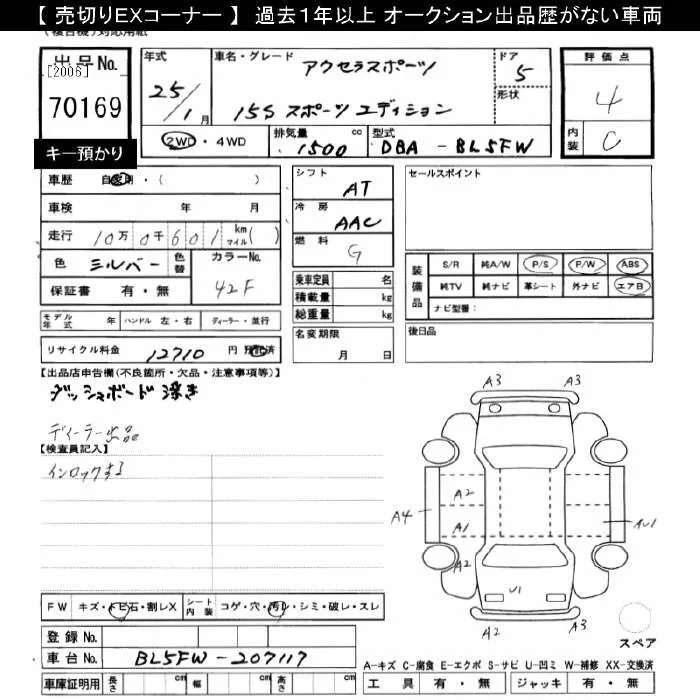 【 売切りEXコーナー 】 過去1年以上 オークション出品歴がない車両
(複合機)対応用紙
出品No.
[2006]
70169
キー預かり
年式
25/1月
車名・グレード
アクセラスポーツ
15S スポーツエディション
ドア
5
形状
評価点
4
内装
C
2WD・4WD
排気量
1500
cc
型式
DBA - BL5FW
車歴 自家用・( )
車検 年 月
走行 10万0千601 km マイル( )
色 シルバー 色替
カラーNo.
42F
保証書 有・無
シフト
AT
冷房
AAC
燃料
G
乗車定員 名
積載量 kg
総重量 kg
名変期限
月 日
セールスポイント
装備品
S/R 純A/W P/S P/W ABS
純TV 純ナビ 革シート 外ナビ エアB
ナビ型番:
後日品
モデル年式 年 ハンドル 左・右 ディーラー・並行
リサイクル料金 12710 円 預託済
【出品店申告欄(不良箇所・欠品・注意事項等)】
ダッシュボード浮き
ディーラー出品
【検査員記入】
インロックする
A3 A3
A2
A4 A1 AU1
A2
U1
A2 A3
スペア
FW キズ・トビ石・割レX シート内装 コゲ・穴・汚レ・シミ・破レ・スレ
登録No.
車台No. BL5FW-207117
車庫証明用 長さ cm 幅 cm 高さ cm
A-キズ C-腐食 E-エクボ S-サビ U-凹ミ W-補修 XX-交換済
工具 有・無 ジャッキ 有・無